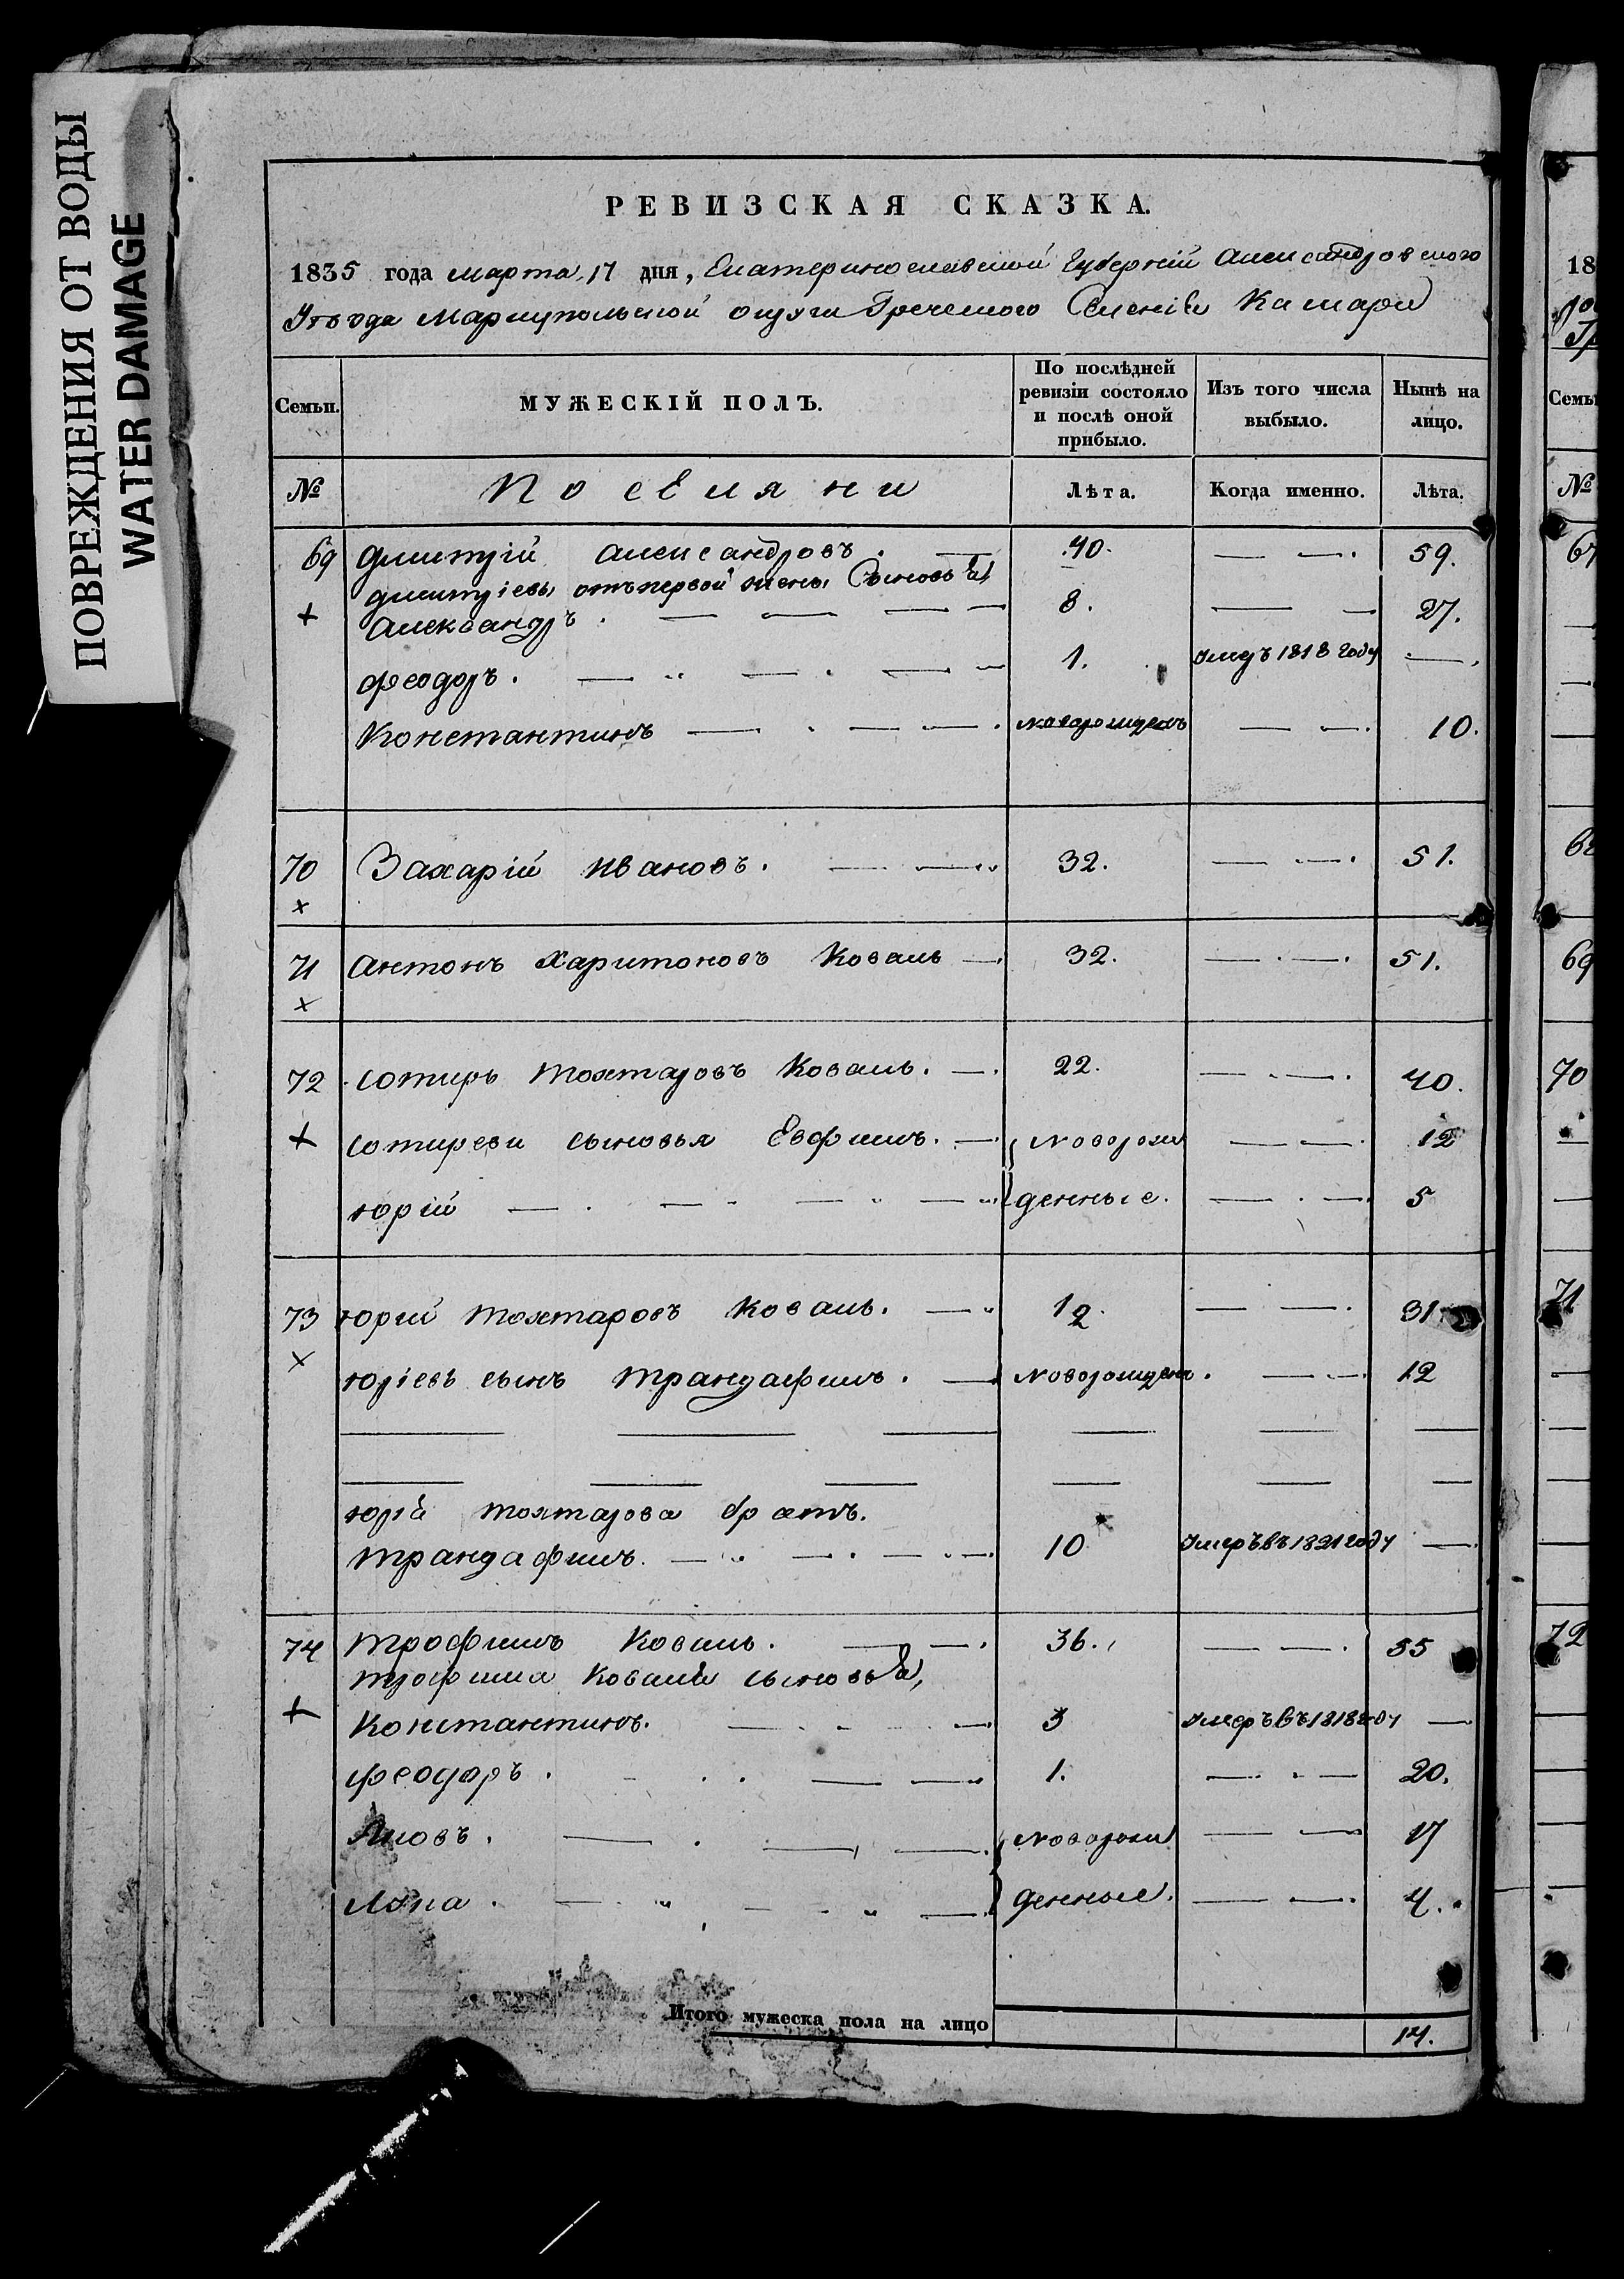 ПОВРЕЖДЕНИЯ ОТ ВОДЫ
WATER DAMAGE
РЕВИЗСКАЯ СКАЗКА.
1835 года марта 17 дня, Екатеринославской Губерніи Александровского
Уѣзда Мариупольской округи Греческого Селенія Камари
Семьи. МУЖЕСКІЙ ПОЛЪ. По послѣдней ревизіи состояло и послѣ оной прибыло. Изъ того числа выбыло. Нынѣ на лицо.
№ Поселяни Лѣта. Когда именно. Лѣта.
69 Дмитрій Александровъ. 40. 59.
Дмитріевы отъ первой жены Сыновья
Александръ. 8. 27.
Феодоръ. 1. умеръ 1818 году
Константинъ новорожденъ 10.
70 Захарій Ивановъ. 32. 51.
71 Антонъ Харитоновъ Коваль 32. 51.
72 Сотирь Тохтаровъ Коваль. 22. 40.
Сотиреви сыновья Евфимъ. новорож 12
Юрій денные. 5
73 Юрий Тохтаровъ Коваль. 12. 31
Юріевъ сынъ Трандафилъ. новорожденъ. 12
Юрія Тохтарова братъ.
Трандафилъ. 10 Умеръ въ 1821 году
74 Трофимъ Коваль. 36. 55
Трофима Коваля сыновья,
Константинъ. 3 Умеръ въ 1818 году
Феодоръ. 1. 20.
Яковъ. новорож 17
Лука. денные. 4.
Итого мужеска пола на лицо 14.
18
Семьи
№
67
68
69
70
71
72